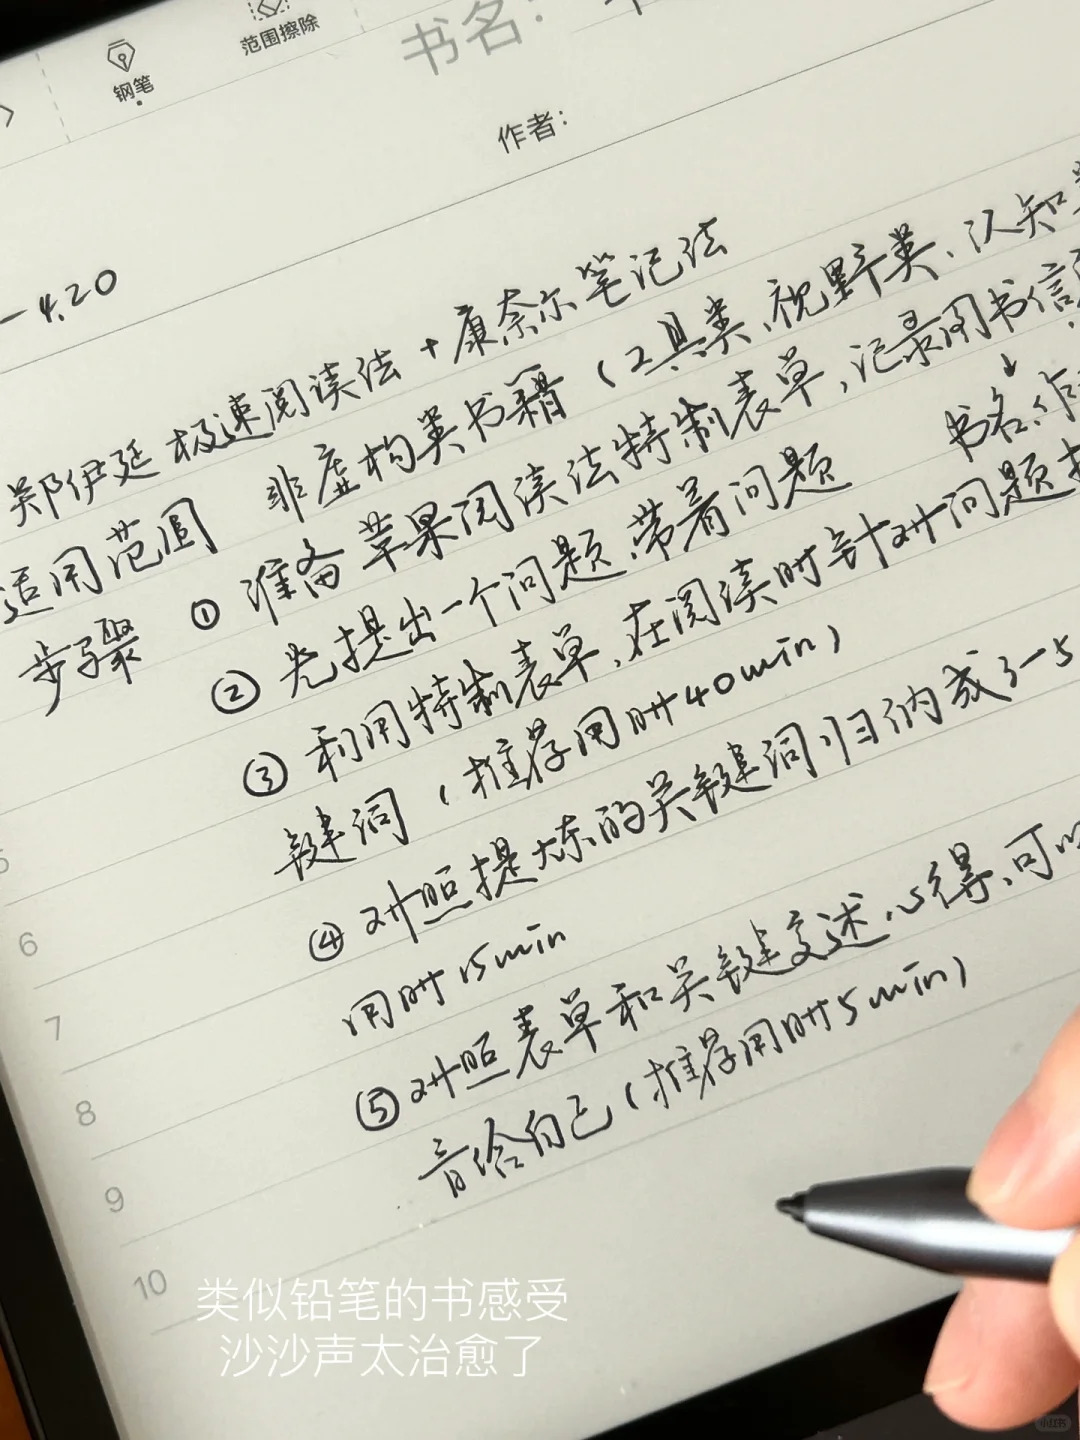 钢笔
范围擦除
书名:
作者:
-4.20
郑伊廷极速阅读法+康奈尔笔记法
适用范围 非虚构类书籍(工具类、视野类、认知
步骤 ① 准备苹果阅读法特制表单,记录图书信
书名、作
② 先提出一个问题,带着问题
③ 利用特制表单,在阅读时针对问题
键词(推荐用时40min)
④ 对照提炼的关键词归纳成3-5
用时15min
⑤对照表单和关键交述心得,可以
音给自己(推荐用时5min)
6
7
8
9
10
类似铅笔的书感受
沙沙声太治愈了
小红书